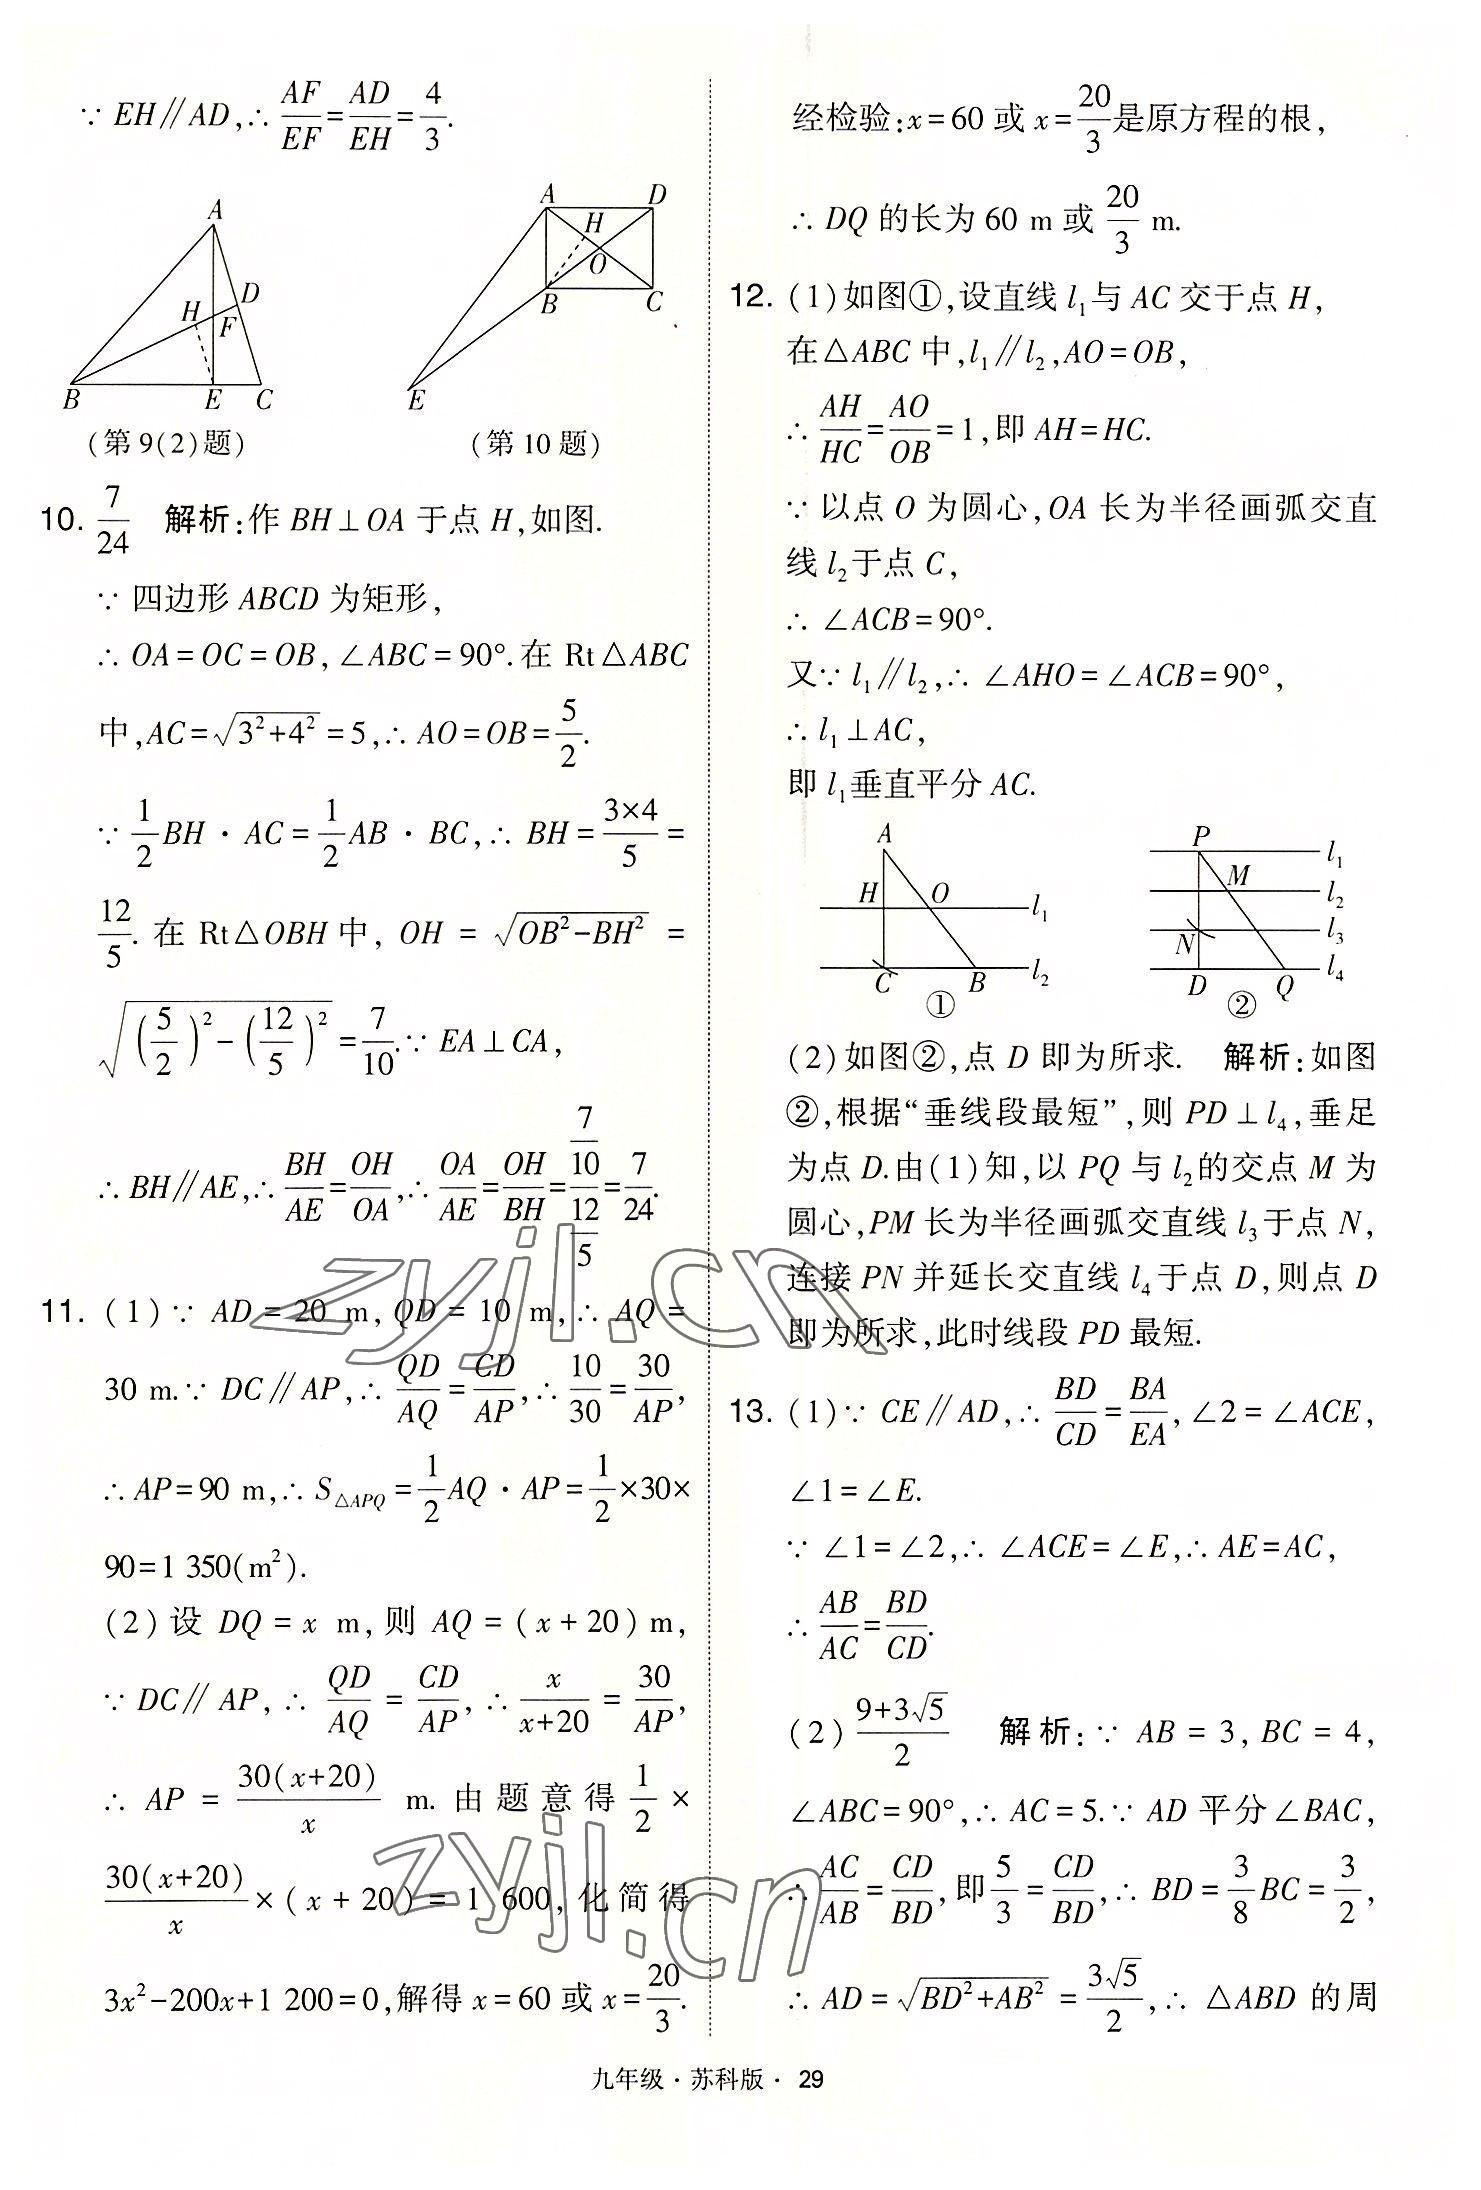 ∵ EH∥AD,∴ AF/EF=AD/EH=4/3.
A
H
D
F
B
E
C
(第9(2)题)
A
D
H
O
B
C
E
(第10题)
10. 7/24 解析:作 BH⊥OA 于点 H,如图.
∵ 四边形 ABCD 为矩形,
∴ OA=OC=OB,∠ABC=90°.在 Rt△ABC
中,AC=√(3²+4²)=5,∴ AO=OB=5/2.
∵ 1/2 BH · AC=1/2 AB · BC,∴ BH=(3×4)/5=
12/5. 在 Rt△OBH 中, OH = √(OB²-BH²) =
√((5/2)²-(12/5)²)=7/10.∵ EA⊥CA,
∴ BH∥AE,∴ BH/AE=OH/OA,∴ OA/AE=OH/BH=(7/10)/(12/5)=7/24.
11. (1)∵ AD=20 m,QD=10 m,∴ AQ=
30 m.∵ DC∥AP,∴ QD/AQ=CD/AP,∴ 10/30=30/AP,
∴ AP=90 m,∴ S△APQ=1/2 AQ · AP=1/2×30×
90=1 350(m²).
(2)设 DQ=x m,则 AQ=(x+20)m,
∵ DC∥AP,∴ QD/AQ=CD/AP,∴ x/(x+20)=30/AP,
∴ AP=30(x+20)/x m. 由题意得 1/2×
30(x+20)/x×(x+20)=1 600,化简得
3x²-200x+1 200=0,解得 x=60 或 x=20/3.
经检验:x=60 或 x=20/3是原方程的根,
∴ DQ 的长为 60 m 或 20/3 m.
12. (1)如图①,设直线 l₁与 AC 交于点 H,
在△ABC 中,l₁∥l₂,AO=OB,
∴ AH/HC=AO/OB=1,即 AH=HC.
∵ 以点 O 为圆心,OA 长为半径画弧交直
线 l₂于点 C,
∴ ∠ACB=90°.
又∵ l₁∥l₂,∴ ∠AHO=∠ACB=90°,
∴ l₁⊥AC,
即 l₁垂直平分 AC.
A
H
O
l₁
C
B
l₂
①
P
l₁
M
l₂
N
l₃
D
Q
l₄
②
(2)如图②,点 D 即为所求. 解析:如图
②,根据“垂线段最短”,则 PD⊥l₄,垂足
为点 D.由(1)知,以 PQ 与 l₂的交点 M 为
圆心,PM 长为半径画弧交直线 l₃于点 N,
连接 PN 并延长交直线 l₄于点 D,则点 D
即为所求,此时线段 PD 最短.
13. (1)∵ CE∥AD,∴ BD/CD=BA/EA,∠2=∠ACE,
∠1=∠E.
∵ ∠1=∠2,∴ ∠ACE=∠E,∴ AE=AC,
∴ AB/AC=BD/CD.
(2)(9+3√5)/2 解析:∵ AB=3,BC=4,
∠ABC=90°,∴ AC=5.∵ AD 平分∠BAC,
∴ AC/AB=CD/BD,即 5/3=CD/BD,∴ BD=3/8 BC=3/2,
∴ AD=√(BD²+AB²)=3√5/2,∴ △ABD 的周
zyjl.cn
zyjl.cn
九年级 · 苏科版 · 29